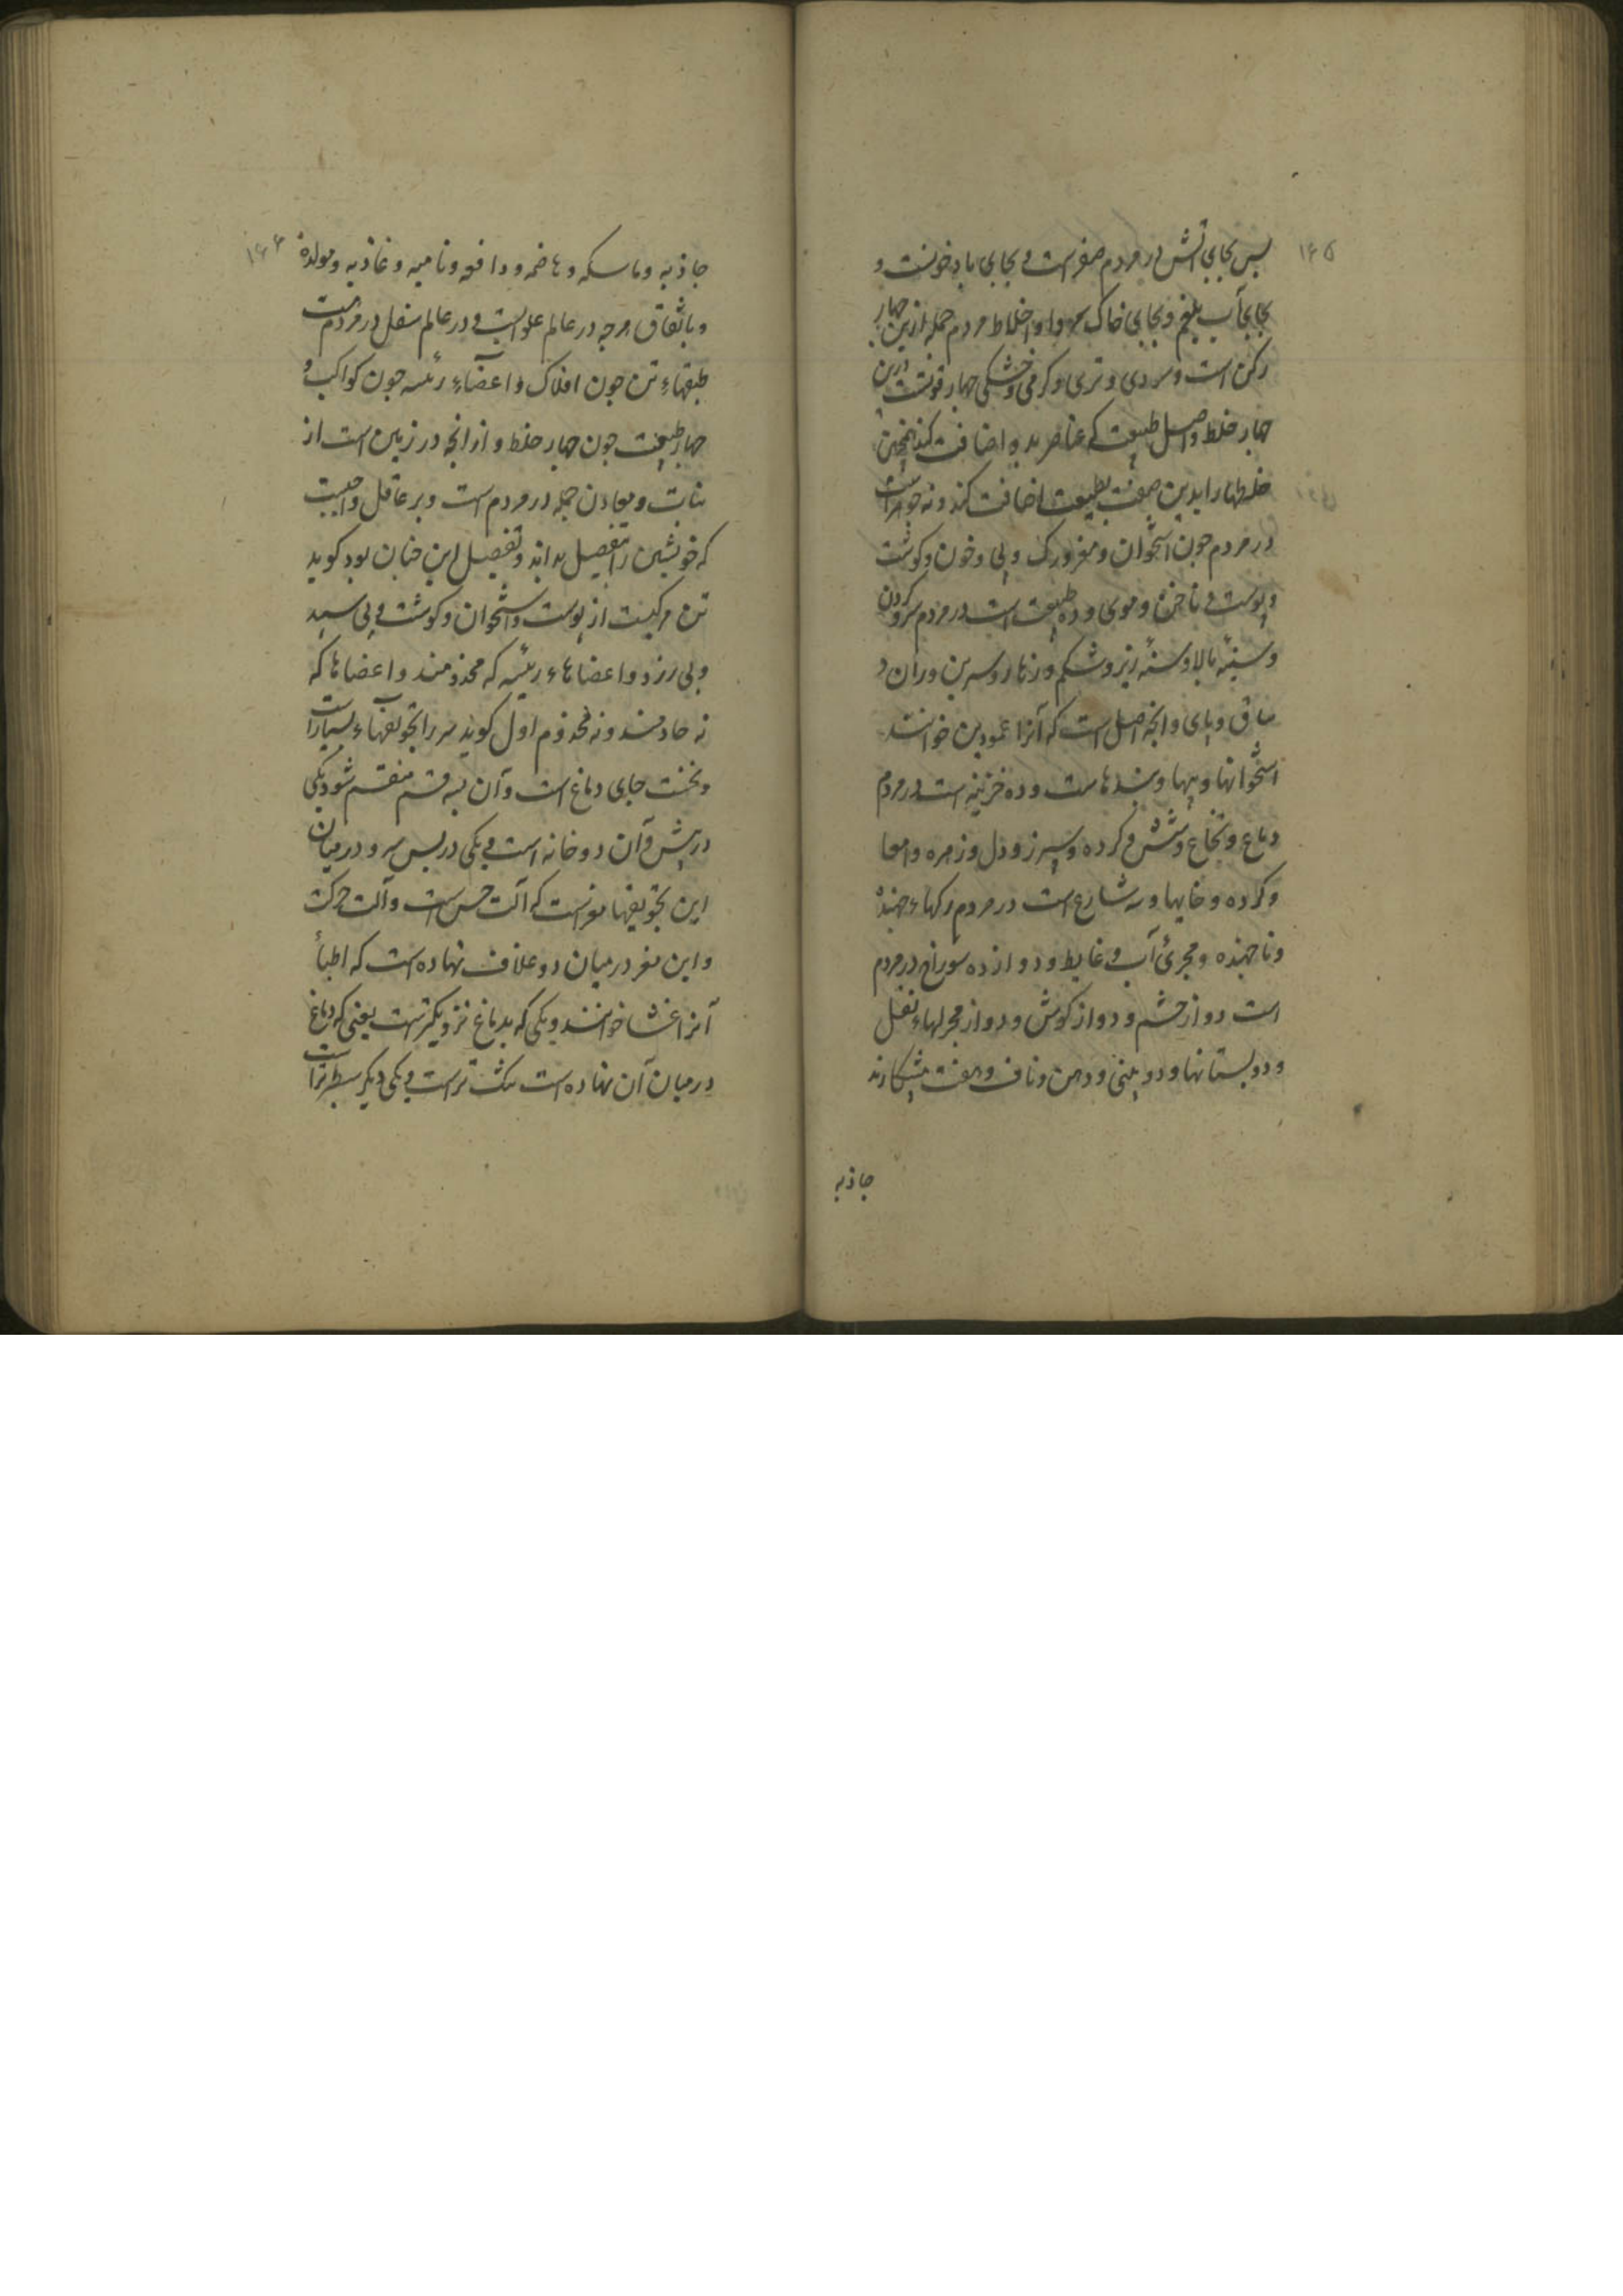 ۱۶۵
پس بجای آتش در مردم صفراست و بجای باد خونست و
بجای آب بلغم و بجای خاک سودا و اخلاط مردم جمله ازین چهار
رکن است و سردی و تری و کرمی و خشکی چهار قوتست درین
چهار خلط و اصل طبیعت که عناصر بدو اضافت کند همچنین
خلطها را بدین صفت بطبیعت اضافت کند و نه جوهر است
در مردم چون استخوان و مغز و رک و پی و خون و کوشت
و پوست و ناخن و موی و ده طبیعت است در مردم سر و کردن
و سینهٔ بالا و سینهٔ زیر و شکم و زهار و سرین و ران و
ساق و پای و آنچه اصل است که آنرا عمودین خوانند
استخوانها و پیها و بندهاست و ده خزینه است در مردم
دماغ و نخاع و شش و کرده و سپرز و دل و زهره و امعا
و کرده و خایها و سه شارع است در مردم رکهاء جهنده
و ناجهنده و مجرئ آب و غایط و دوازده سوراخ در مردم
است دو از چشم و دو از کوش و دو از مجرلهاء ثفل
و دو پستانها و دو بینی و دهن و ناف و هفت پیشکارند
جاذبه
۱۶۶
جاذبه و ماسکه و هاضمه و دافعه و نامیه و غاذیه و مولده
و باتفاق هرچه در عالم علویست و در عالم سفل در مردم است
طبقهاء تن چون افلاک و اعضاء رئسه چون کواکب و
چهار طبیعت چون چهار خلط و از انچه در زمین است از
نبات و معادن جمله در مردم است و بر عاقل واجبست
که خویشتن را تفصیل بداند و تفصیل این چنان بود کوید
تن مرکبست از پوست و استخوان و کوشت و پی سپید
و پی زرد و اعضاهاء رئیسه که مخدومند و اعضاها که
نه خادمند و نه مخدوم اول کوید سر را تجویفهاء بسیار است
و نخست جای دماغ است و آن بسه قسم منقسم شود یکی
در پیش و آن دو خانه است و یکی در پس سر و در میان
این تجویفها مغزست که آلت حس است و آلت حرکت
و این مغز در میان دو غلاف نهاده است که اطبأ
آنرا غشا خوانند و یکی که بدماغ نزدیکترست یعنی که دماغ
در میان آن نهاده است تنک تر است و یکی دیکر سطبرتر است